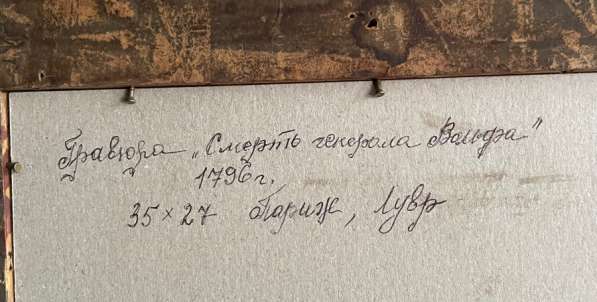 Гравюра „Смерть генерала Вольфа"
1796 г.
35 × 27 Париж, Лувр